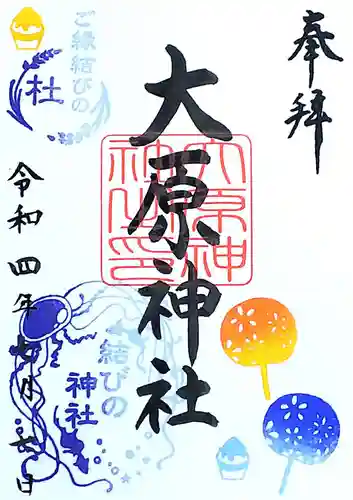 奉拝
大原神社
大原神
社印
ご縁結びの
杜
結びの
神社
令和四年七月六日